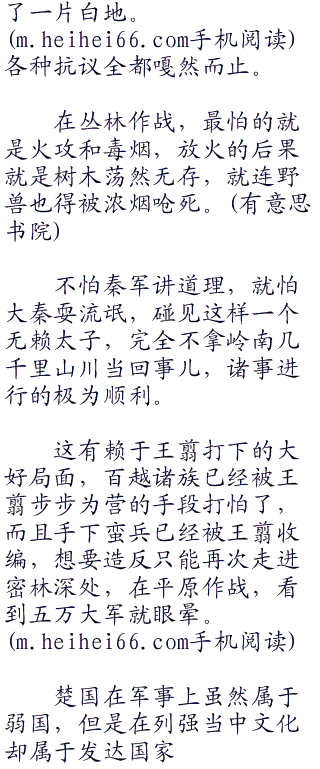 了一片白地。
(m.heihei66.com手机阅读)
各种抗议全都嘎然而止。
在丛林作战，最怕的就
是火攻和毒烟，放火的后果
就是树木荡然无存，就连野
兽也得被浓烟呛死。(有意思
书院)
不怕秦军讲道理，就怕
大秦耍流氓，碰见这样一个
无赖太子，完全不拿岭南几
千里山川当回事儿，诸事进
行的极为顺利。
这有赖于王翦打下的大
好局面，百越诸族已经被王
翦步步为营的手段打怕了，
而且手下蛮兵已经被王翦收
编，想要造反只能再次走进
密林深处，在平原作战，看
到五万大军就眼晕。
(m.heihei66.com手机阅读)
楚国在军事上虽然属于
弱国，但是在列强当中文化
却属于发达国家